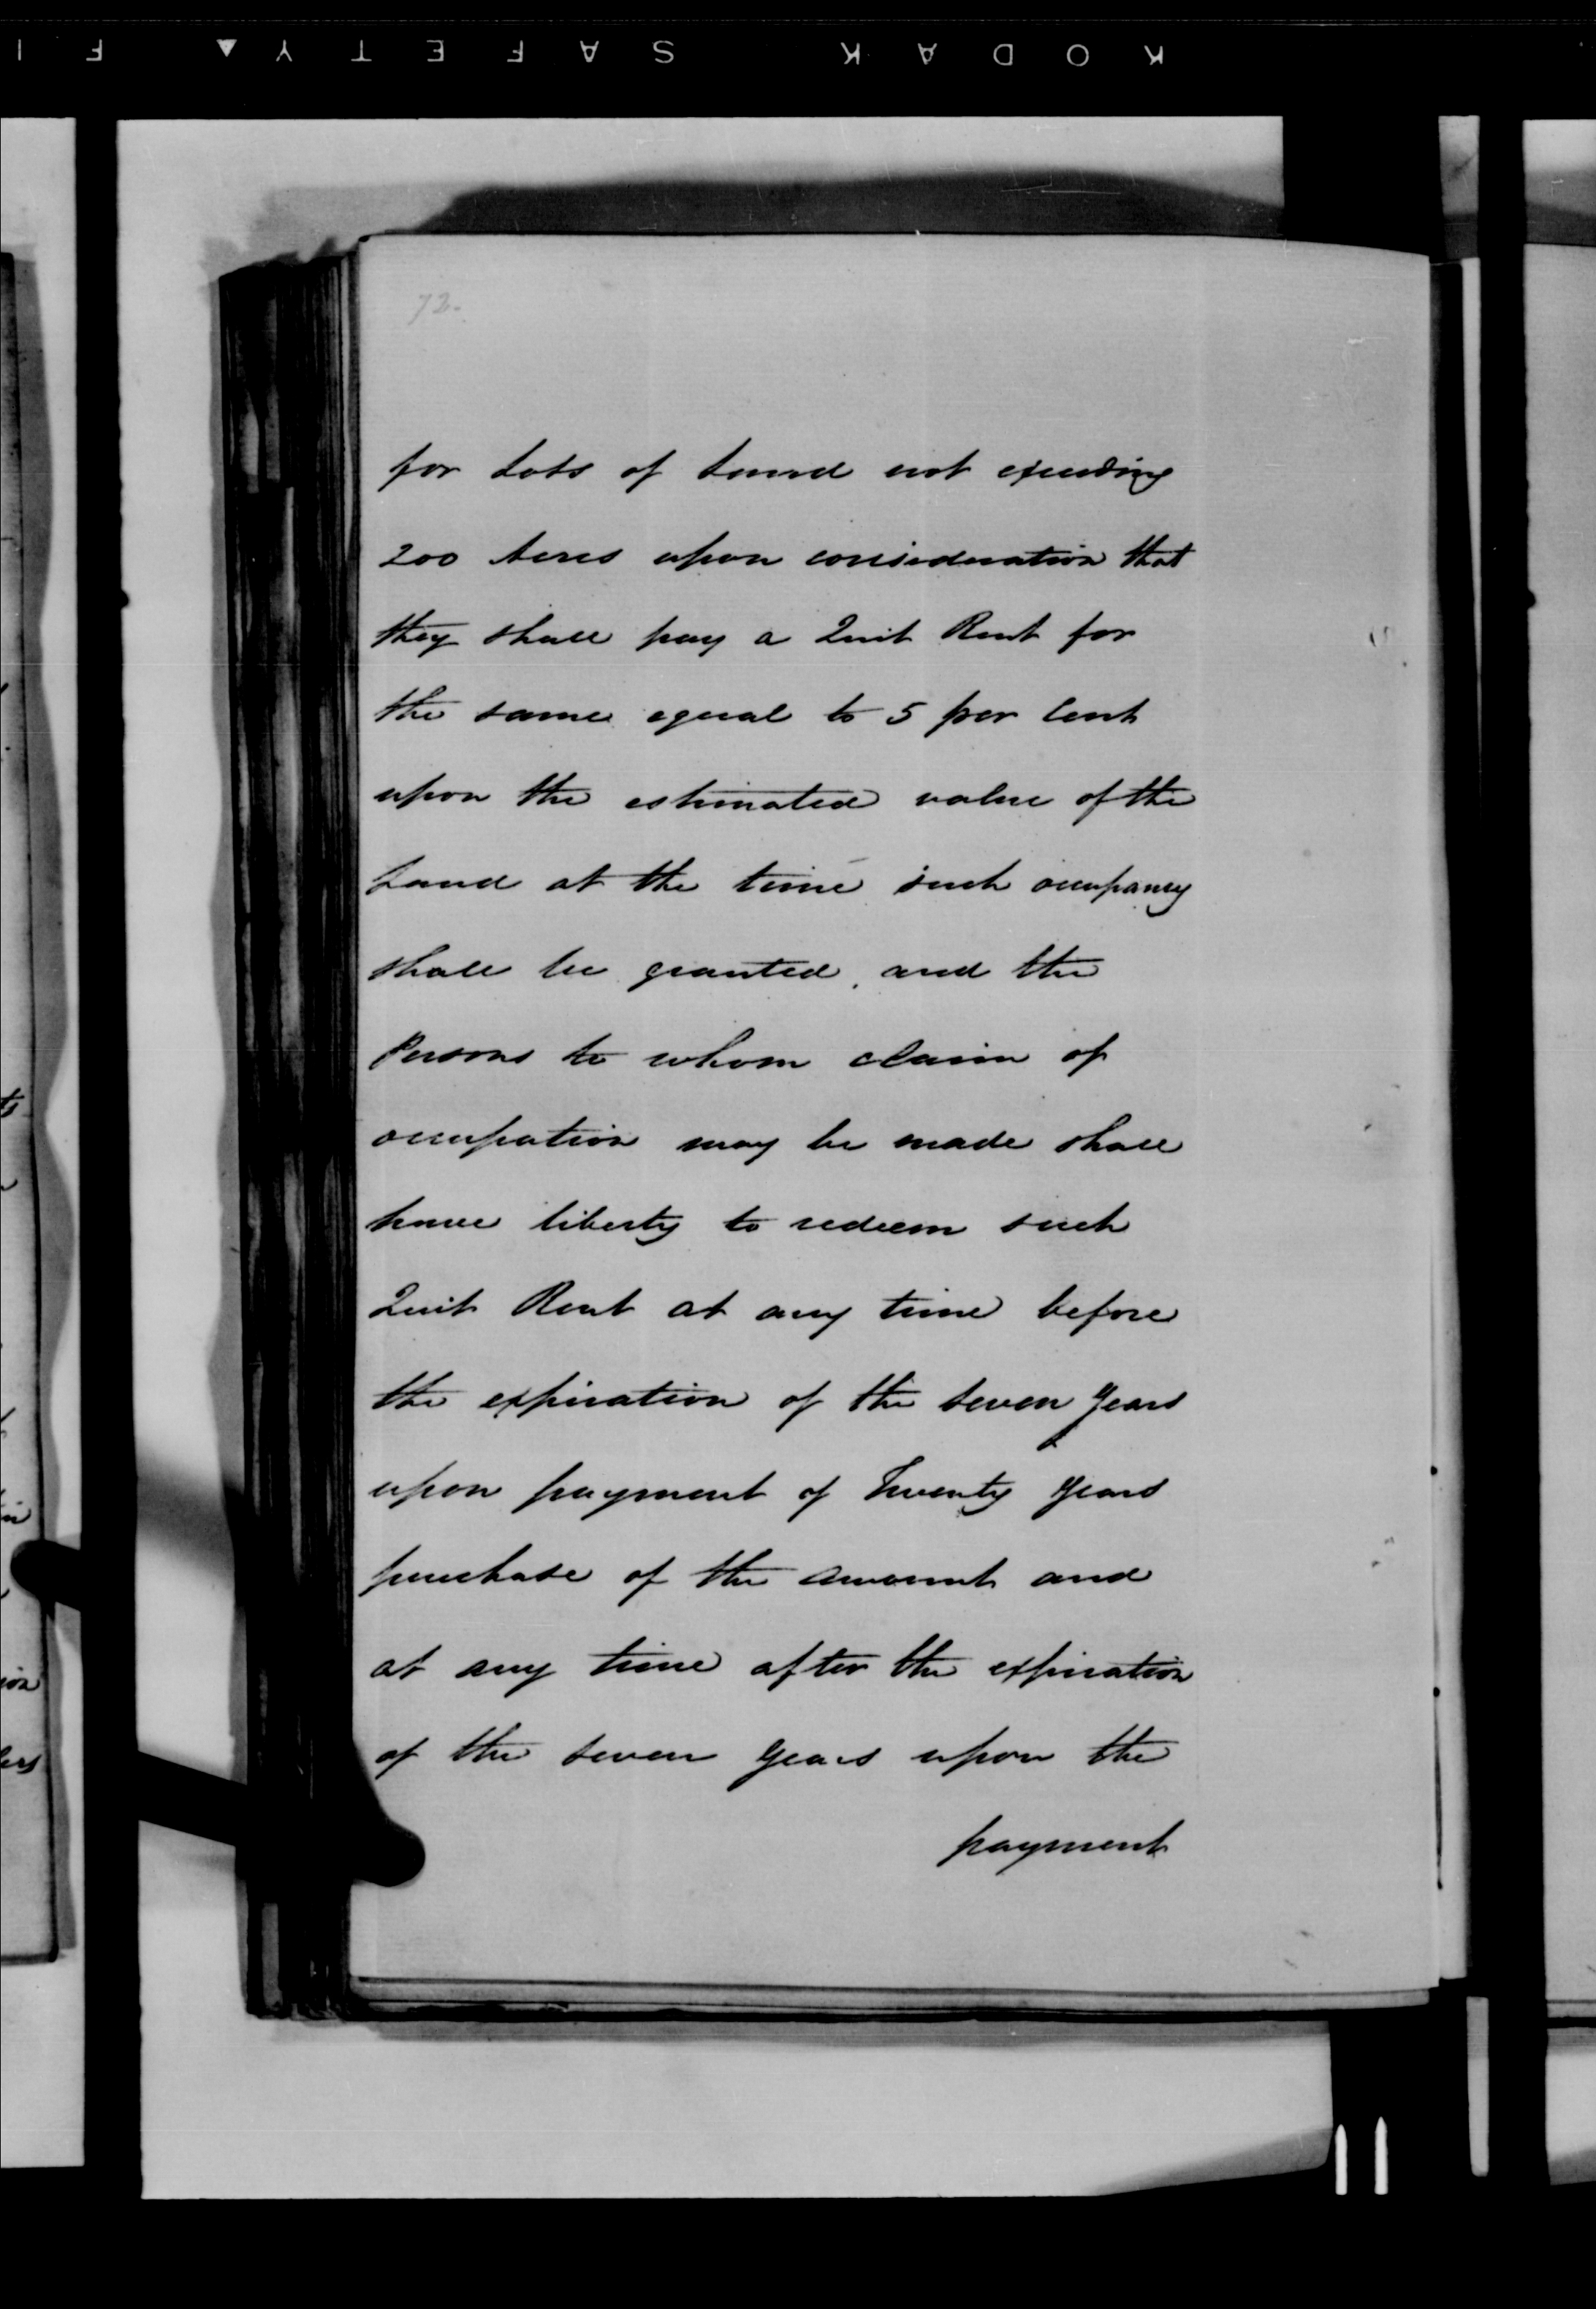 KODAK SAFETY FI
72.
for Lots of Land not exceeding
200 Acres upon consideration that
they shall pay a Quit Rent for
the same equal to 5 per Cent
upon the estimated value of the
Land at the time such occupancy
shall be granted, and the
Persons to whom claim of
occupation may be made shall
have liberty to redeem such
Quit Rent at any time before
the expiration of the seven years
upon payment of Twenty years
purchase of the amount and
at any time after the expiration
of the seven years upon the
payment